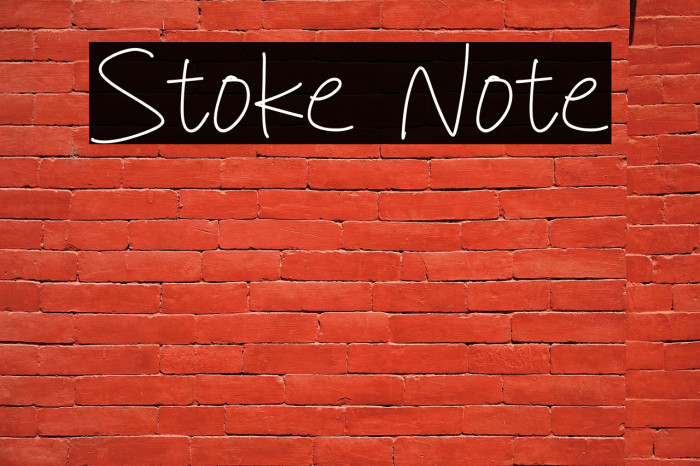 Stoke Note